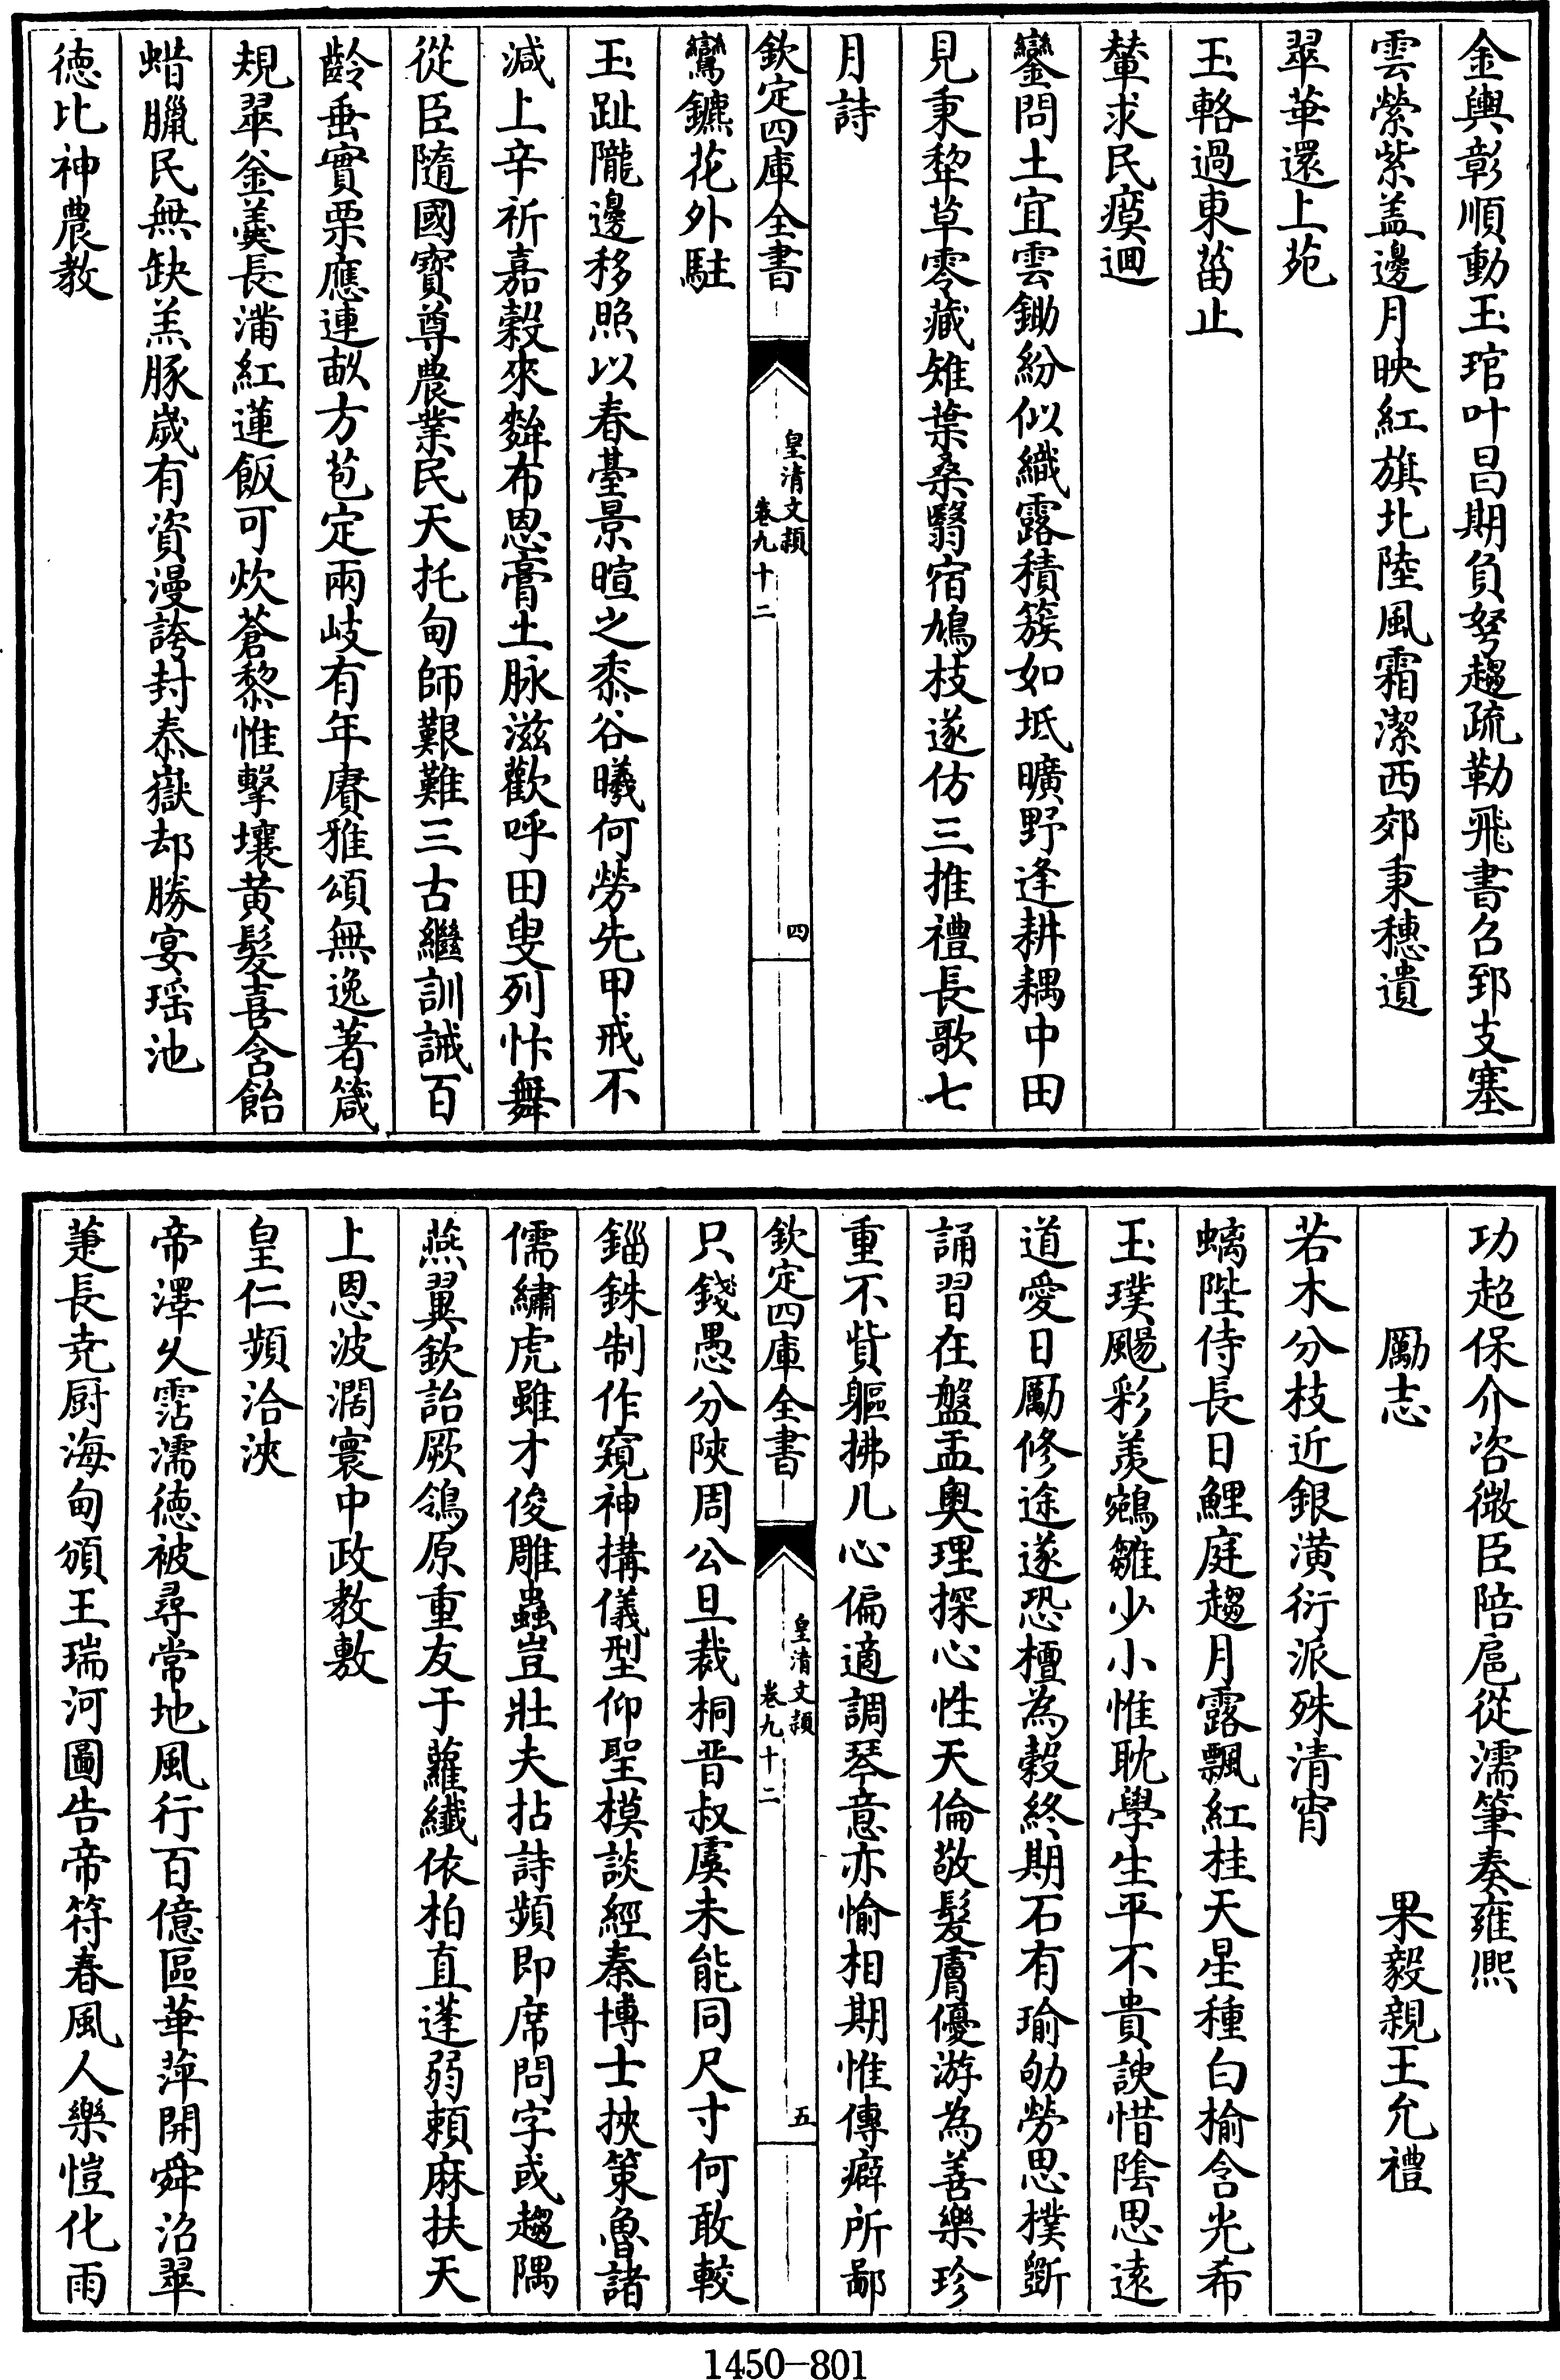 金輿彰順動玉琯叶昌期負弩趨疏勒飛書召郅支塞
雲縈紫盖邊月映紅旗北陸風霜潔西郊秉穗遺
翠華還上苑
玉輅過東菑止
輦求民瘼迴
鑾問土宜雲鋤紛似織露積簇如坻曠野逢耕耦中田
見秉犂草零藏雉葉桑翳宿鳩枝遂仿三推禮長歌七
月詩
欽定四庫全書
皇清文穎
卷九十二
四
鸞鑣花外駐
玉趾隴邊移照以春臺景暄之黍谷曦何勞先甲戒不
減上辛祈嘉穀來麰布恩膏土脉滋歡呼田叟列忭舞
從臣隨國寳尊農業民天托甸師艱難三古繼訓誡百
齡垂實栗應連畝方苞定兩岐有年賡雅頌無逸著箴
規翠釡羹長滿紅蓮飯可炊蒼黎惟擊壤黄髮喜含飴
蜡臘民無缺羔豚嵗有資漫誇封泰嶽却勝宴瑶池
徳比神農教
功超保介咨微臣陪扈從濡筆奏雍熙
勵志
果毅親王允禮
若木分枝近銀潢衍派殊清宵
螭陛侍長日鯉庭趨月露飄紅桂天星種白榆含光希
玉璞颺彩羨鵷雛少小惟耽學生平不貴諛惜隂思遠
道愛日勵修途遂恐檀為榖終期石有瑜劬勞思樸斵
誦習在盤盂奥理探心性天倫敬髮膚優游為善樂珍
重不貲軀拂几心偏適調琴意亦愉相期惟傳癖所鄙
欽定四庫全書
皇清文穎
卷九十二
五
只錢愚分陜周公旦裁桐晋叔虞未能同尺寸何敢較
錙銖制作窺神搆儀型仰聖模談經秦博士挾策魯諸
儒繡虎雖才俊雕蟲豈壯夫拈詩頻即席問字或趨隅
燕翼欽詒厥鴒原重友于蘿纖依柏直蓬弱賴麻扶天
上恩波濶寰中政教敷
皇仁頻洽浹
帝澤久霑濡徳被尋常地風行百億區華萍開舜沼翠
萐長尭厨海甸頒王瑞河圖告帝符春風人樂愷化雨
1450—801